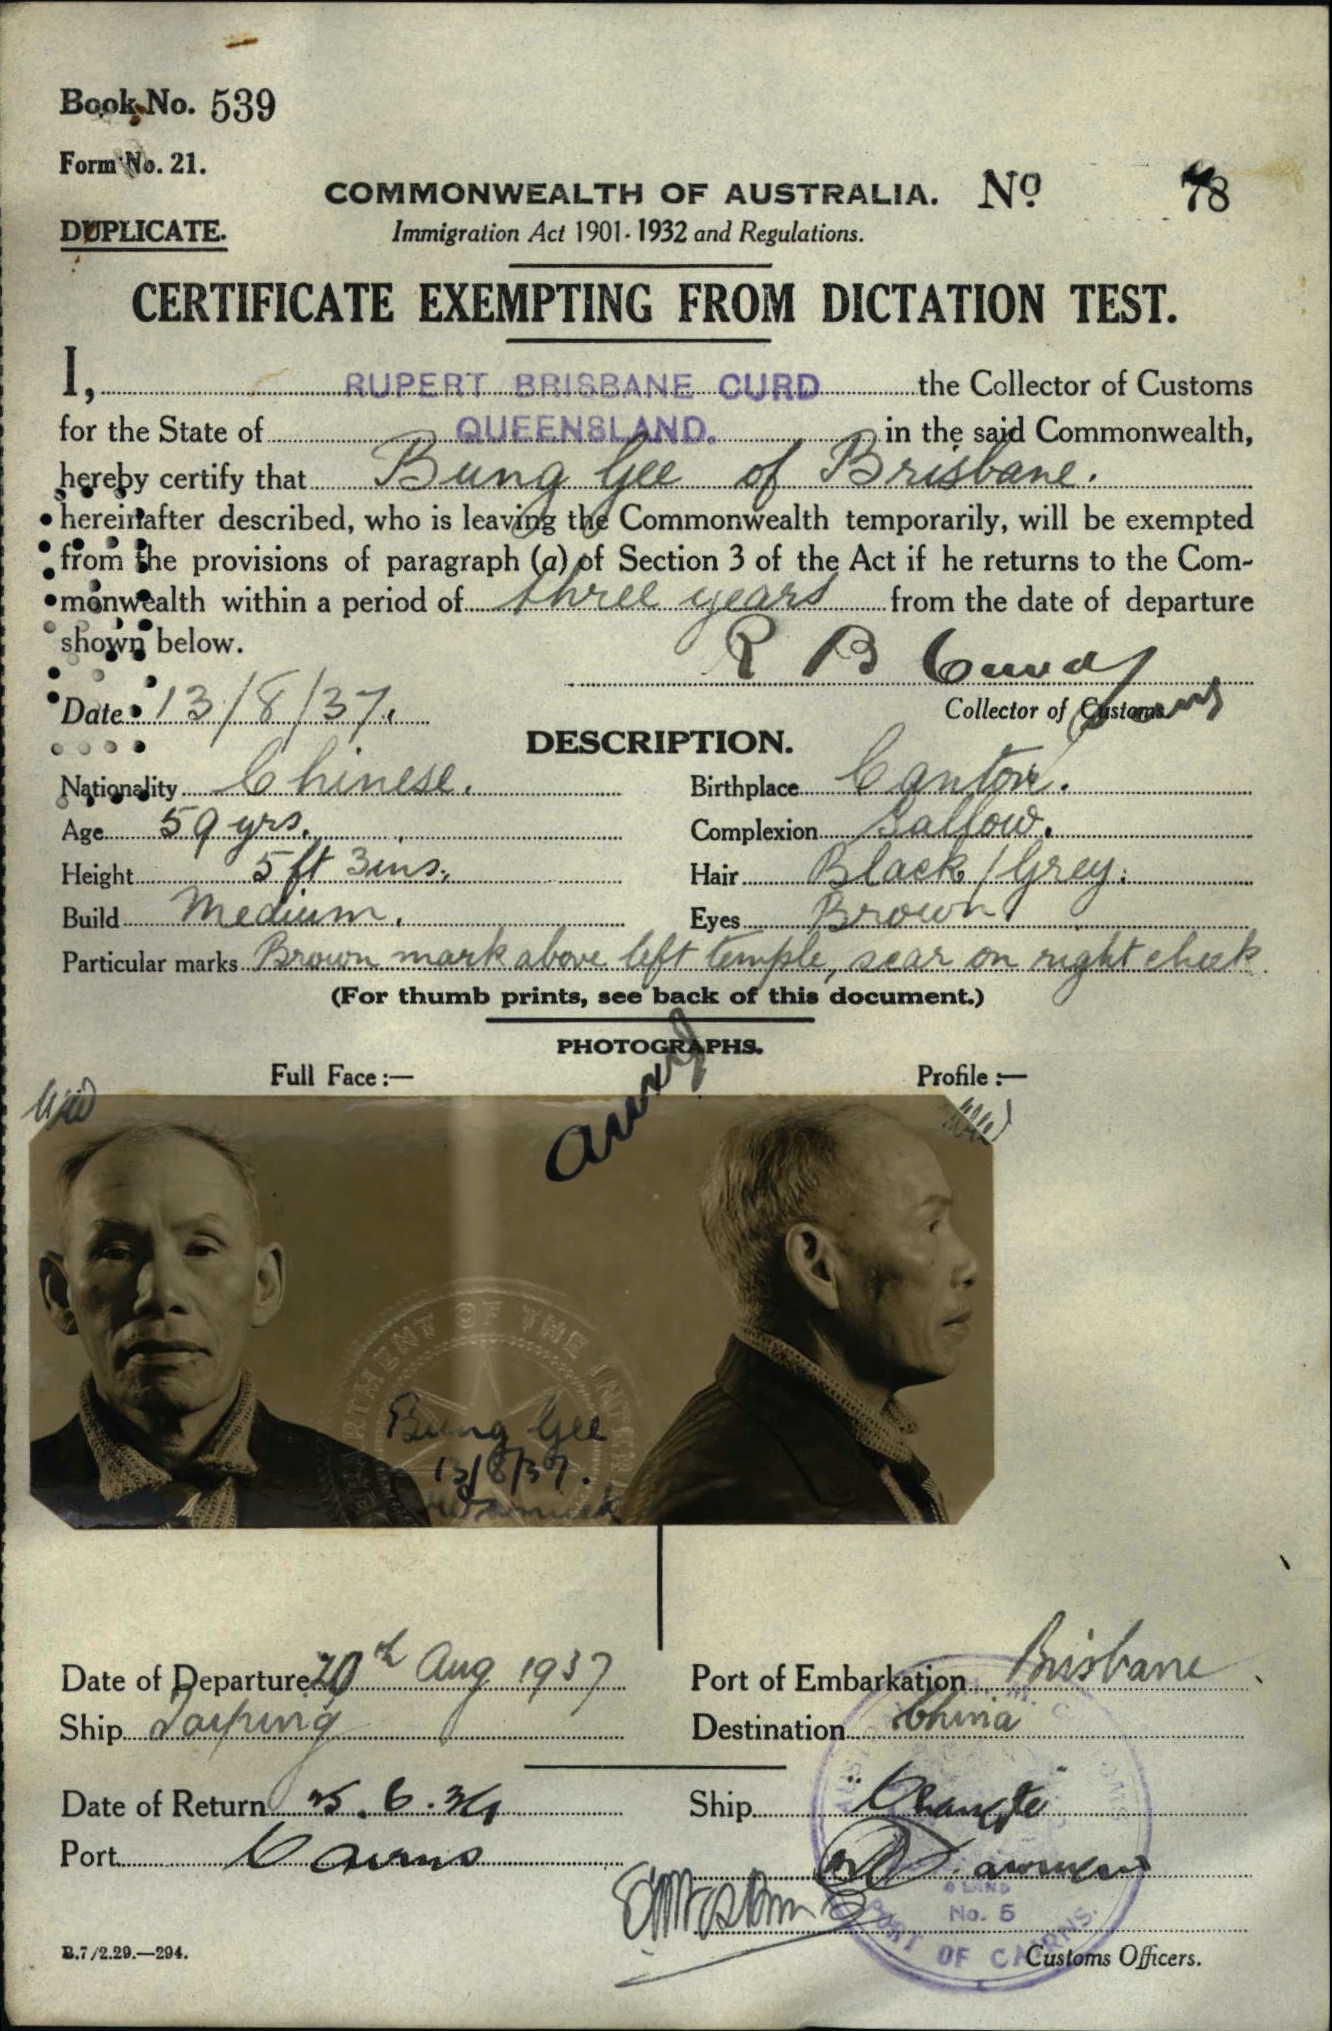 Book No. 539
Form No. 21.
COMMONWEALTH OF AUSTRALIA. No 78
DUPLICATE.
Immigration Act 1901-1932 and Regulations.
CERTIFICATE EXEMPTING FROM DICTATION TEST.
I, RUPERT BRISBANE CURD the Collector of Customs
for the State of QUEENSLAND. in the said Commonwealth,
hereby certify that Bung Gee of Brisbane.
hereinafter described, who is leaving the Commonwealth temporarily, will be exempted
from the provisions of paragraph (a) of Section 3 of the Act if he returns to the Com-
monwealth within a period of three years from the date of departure
shown below.
R B Curd
Date 13/8/37.
Collector of Customs
DESCRIPTION.
Nationality Chinese. Birthplace Canton.
Age 59 yrs. Complexion Sallow.
Height 5 ft 3 ins. Hair Black/Grey.
Build Medium. Eyes Brown.
Particular marks Brown mark above left temple, scar on right cheek
(For thumb prints, see back of this document.)
PHOTOGRAPHS.
Full Face:— Profile:—
DEPARTMENT OF THE INTERIOR
Bung Gee
13/8/37.
Date of Departure 20th Aug 1937 Port of Embarkation Brisbane
Ship Taiping Destination China
Date of Return 25.6.39 Ship "Changte"
Port Cairns
No. 5
PORT OF CAIRNS.
B.7/2.29.—294.
Customs Officers.